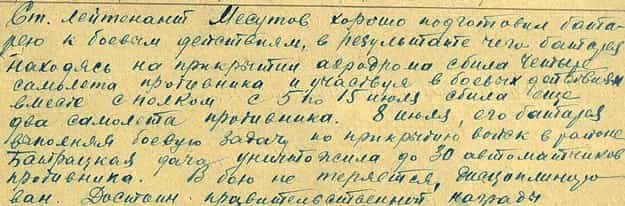 Ст. лейтенант Месутов хорошо подготовил бата-
рею к боевым действиям, в результате чего батарея
находясь на прикрытии аэродрома сбила четыре
самолета противника и участвуя в боевых действиях
вместе с полком с 5 по 15 июля сбила еще
два самолета противника. 8 июля, его батарея
выполняя боевую задачу по прикрытию войск в районе
Батрацкая дача уничтожила до 30 автоматчиков
противника. В бою не теряется, дисциплиниро-
ван. Достоин правительственной награды